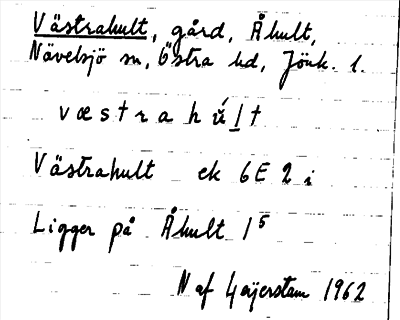 Västrahult, gård, Åhult,
Nävelsjö sn, Östra hd, Jönk. l.
væstrahúlt
Västrahult ek 6E 2 i
Ligger på Åhult 1⁵
N af Geijerstam 1962